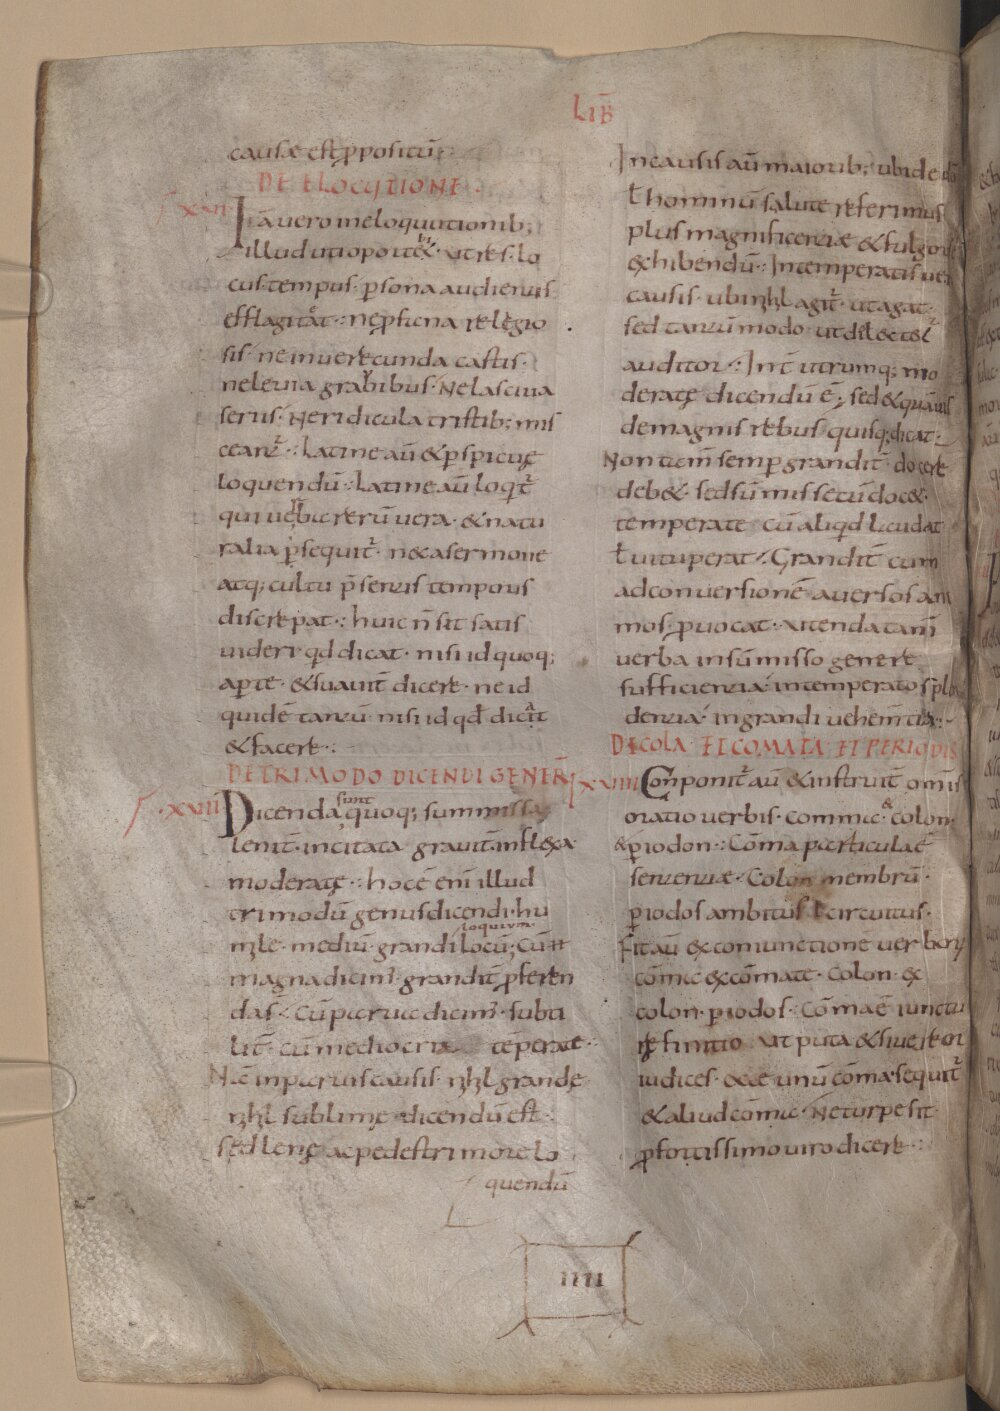 LIB̄
causae est ꝓpositū
DE ELOCUTIONE
XVI Iā vero in eloquutionib;
illud uti oportebit & ut res · lo
cus · tempus · ꝑsona audientis
efflagitat · · ne ꝓfana religio
sis · ne inverecunda castis ·
ne levia gravibus · Ne lasciva
seriis · Ne ridicula tristib; mis
ceant᷑ · · Latine aū & ꝑspicue
loquendū · · Latine aū loq̇t᷑
qui verbis rerū vera · & natu
ralia ꝑsequit᷑ · nec a sermone
atq; cultu p̄sentis temporis
discrepat · · huic n̄ sit satis
videri qd dicat · nisi id quoq;
aꝑte · & suavit̄ dicere · ne id
quidē tantū · nisi id qd̄ dicit
& facere · ·
DE TRIMODO DICENDI GENERE
XVII Dicenda sunt quoq; summissa
lenit̄ · incitata gravit̄ · inflexa
moderate · · hoc ē eni illud
trimodū genus dicendi · hu
mile · mediū · grandiloquium · Cū n̄
magna dicim᷑ · grandit̄ ꝓferen
da s̄ · · Cū parva dicim᷑ · subti
lit̄ · cū mediocria tēperate · ·
Nā in parvis causis · nihil grande
nihil sublime · dicendū est ·
sed lene ac pedestri more lo
quendū
In causis aū maiorib; ubi de dō
ł hominū salute referimus
plus magnificentiae & fulgoris
exhibendū · · In temperatis vero
causis · ubi nihil agit᷑ · ut agat ·
sed tantū modo · ut delectet᷑
auditor · · Int̄ utrumq; mo
derate dicendū ē; sed & quāvis
de magnis rebus quisq; dicat ·
Non tam̄ semꝑ grandit̄ · docere
deb& · sed sūmisse cū doc& ·
temperate · cū aliqd laudat
ł vituperat · Grandit̄ cum
ad conversionē aversos ani
mos · ꝓvocat · Utenda tam̄
verba in sūmisso genere
sufficientia · in temperato splen
dentia · in grandi vehem̄tia · ·
DE COLA ET COMATA ET PERIODIS
XVIII Conponit᷑ aū & instruit᷑ om̄is
oratio verbis · comma · & colon ·
& ꝑiodon · · Cōma particula ē
sententiae · Colon membrū ·
ꝑiodos ambitus ł circuitus ·
Fit aū ex coniunctione verborū
cōma ex cōmate · Colon · ex
colon · ꝑiodos · Cōma ē iunctu
re finitio · ut puta & si vereor
iudices · ecce unū cōma · sequit᷑
& aliud cōma · Ne turpe sit
ꝓ fortissimo viro dicere · ·
IIII